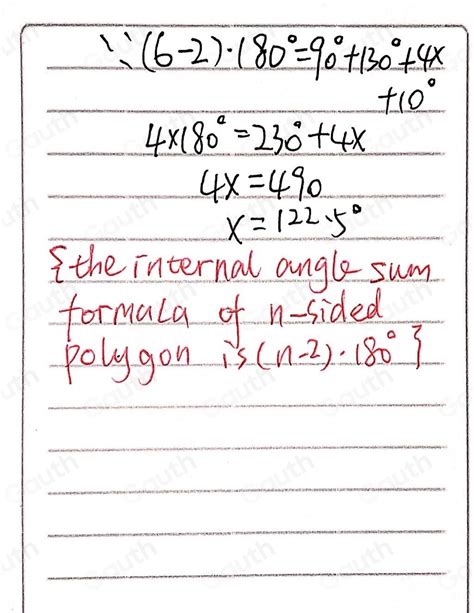 ∵(6-2)·180°=90°+130°+4x
+10°
4×180°=230°+4x
4x=490
x=122.5°
{the internal angle sum
formula of n-sided
polygon is(n-2)·180°}